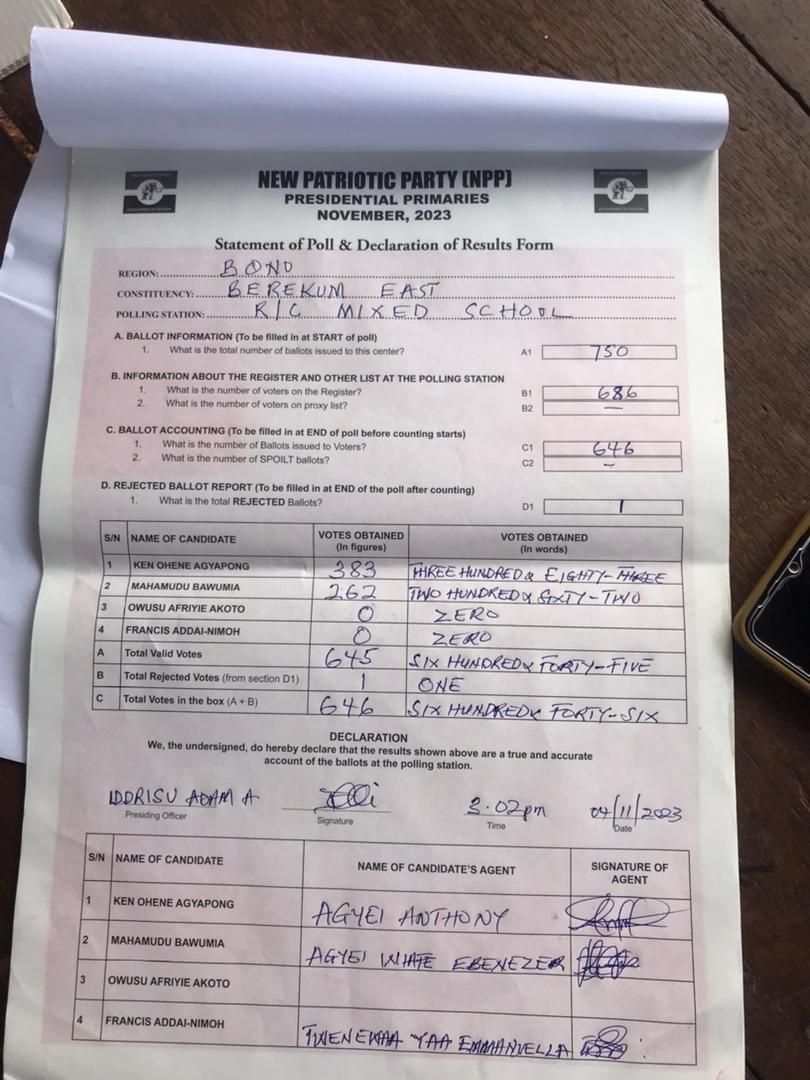 NEW PATRIOTIC PARTY (NPP)
PRESIDENTIAL PRIMARIES
NOVEMBER, 2023
Statement of Poll & Declaration of Results Form
REGION: BONO
CONSTITUENCY: BEREKUM EAST
POLLING STATION: R/C MIXED SCHOOL
A. BALLOT INFORMATION (To be filled in at START of poll)
1. What is the total number of ballots issued to this center? A1 750
B. INFORMATION ABOUT THE REGISTER AND OTHER LIST AT THE POLLING STATION
1. What is the number of voters on the Register? B1 686
2. What is the number of voters on proxy list? B2 –
C. BALLOT ACCOUNTING (To be filled in at END of poll before counting starts)
1. What is the number of Ballots issued to Voters? C1 646
2. What is the number of SPOILT ballots? C2 –
D. REJECTED BALLOT REPORT (To be filled in at END of the poll after counting)
1. What is the total REJECTED Ballots? D1 1
S/N NAME OF CANDIDATE VOTES OBTAINED (In figures) VOTES OBTAINED (In words)
1 KEN OHENE AGYAPONG 383 THREE HUNDRED & EIGHTY-THREE
2 MAHAMUDU BAWUMIA 262 TWO HUNDRED & SIXTY-TWO
3 OWUSU AFRIYIE AKOTO 0 ZERO
4 FRANCIS ADDAI-NIMOH 0 ZERO
A Total Valid Votes 645 SIX HUNDRED & FORTY-FIVE
B Total Rejected Votes (from section D1) 1 ONE
C Total Votes in the box (A + B) 646 SIX HUNDRED & FORTY-SIX
DECLARATION
We, the undersigned, do hereby declare that the results shown above are a true and accurate
account of the ballots at the polling station.
IDDRISU ADAM A 3.02pm 04/11/2023
Presiding Officer Signature Time Date
S/N NAME OF CANDIDATE NAME OF CANDIDATE'S AGENT SIGNATURE OF AGENT
1 KEN OHENE AGYAPONG AGYEI ANTHONY
2 MAHAMUDU BAWUMIA AGYEI WHITE EBENEZER
3 OWUSU AFRIYIE AKOTO
4 FRANCIS ADDAI-NIMOH TWENEWAA YAA EMMANUELLA